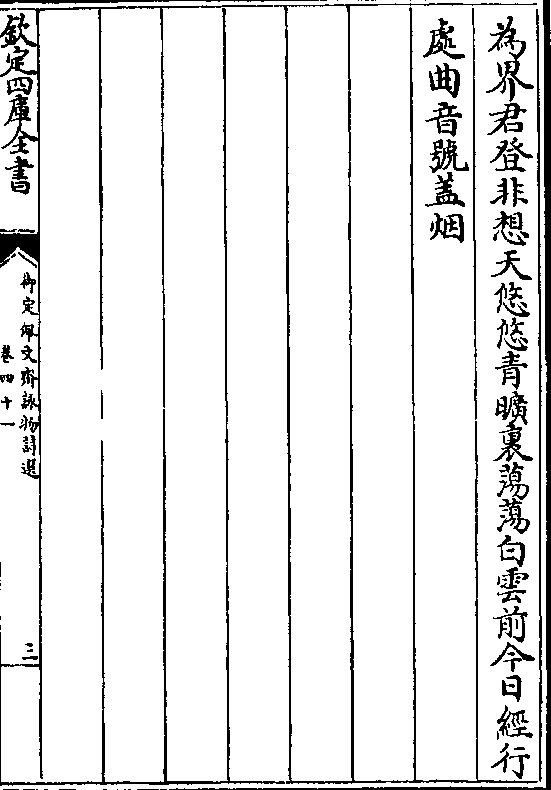 為界君登非想天悠悠青曠裏蕩蕩白雲前今日經行
處曲音號盖烟
欽定四庫全書
御定佩文齋詠物詩選
卷四十一
三